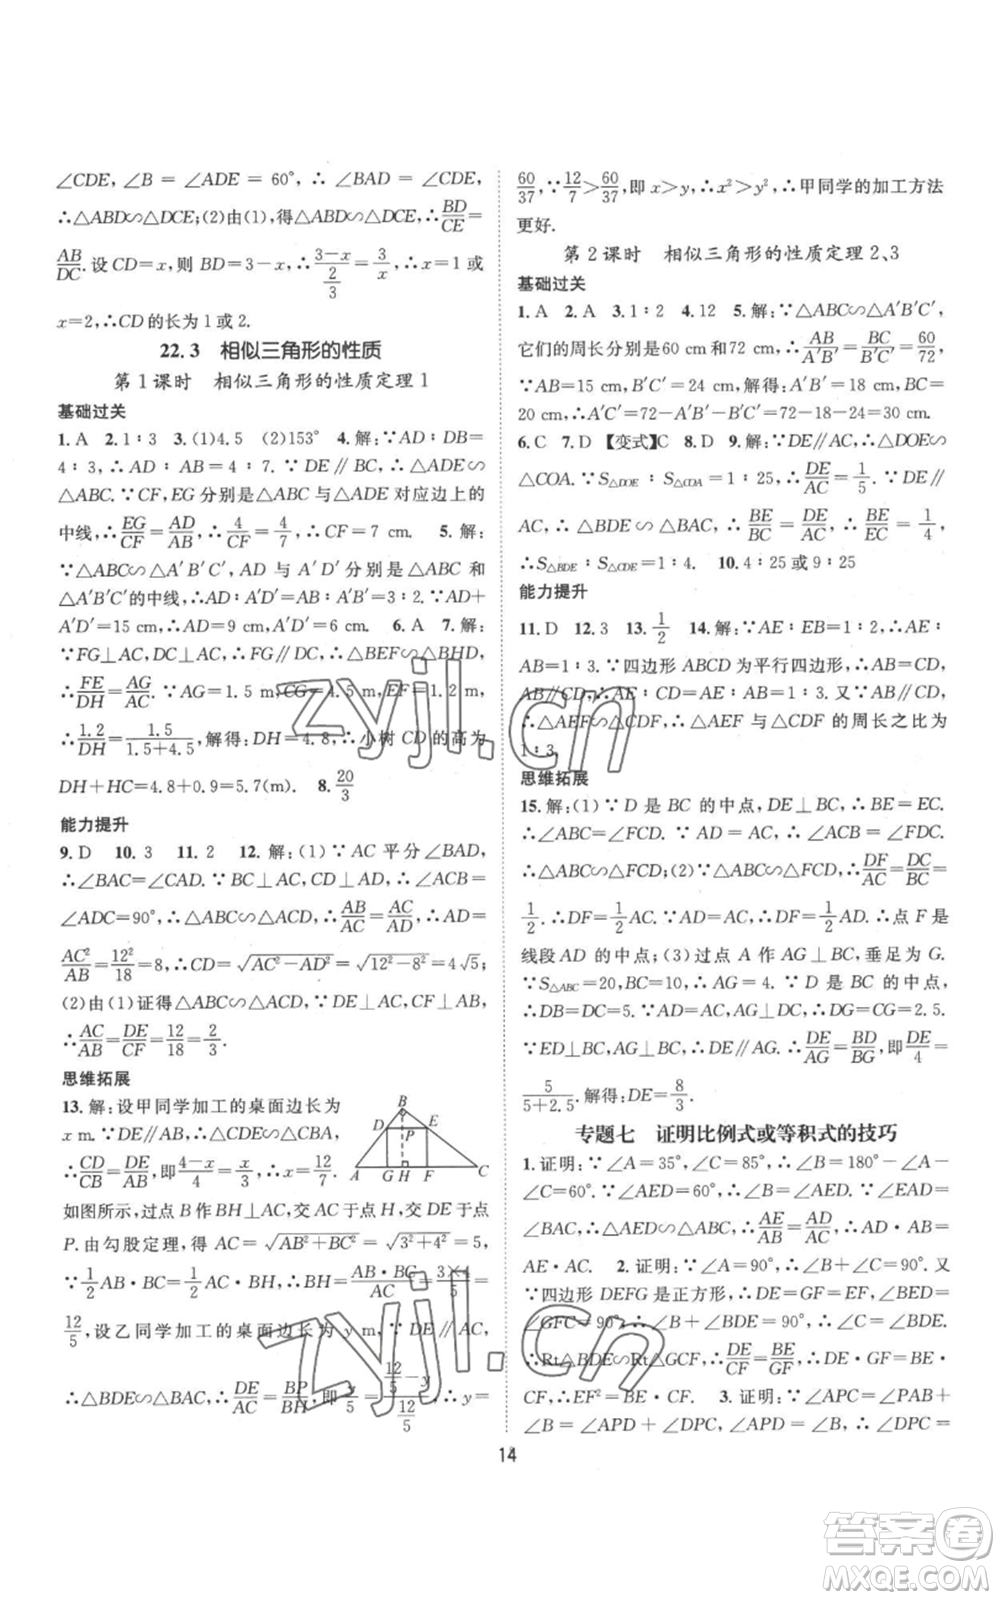 ∠CDE, ∠B = ∠ADE = 60°, ∴ ∠BAD = ∠CDE
∴△ABD∽△DCE;(2)由(1),得△ABD∽△DCE,∴BD/CE=
AB/DC.设CD=x,则BD=3-x,∴(3-x)/(2/3)=3/x,∴x=1或
x=2,∴CD的长为1或2.
22.3 相似三角形的性质
第1课时 相似三角形的性质定理1
基础过关
1.A 2.1∶3 3.(1)4.5 (2)153° 4.解:∵AD∶DB=
4∶3,∴AD∶AB=4∶7.∵DE∥BC,∴△ADE∽
△ABC.∵CF,EG分别是△ABC,△ADE对应边上的
中线,∴EG/CF=AD/AB,∴4/CF=4/7,∴CF=7 cm. 5.解:
∵△ABC∽△A′B′C′,AD与A′D′分别是△ABC和
△A′B′C′的中线,∴AD/A′D′=AB/A′B′=3/2.∵AD+
A′D′=15 cm,∴AD=9 cm,A′D′=6 cm. 6.A 7.解:
∵FG⊥AC,HE⊥AC,∴FG∥HE,∴△BEF∽△BHD,
∴FE/DH=AG/AC.∵AG=1.5 m,CG=4.5 m,EF=1.2 m,
∴1.2/DH=1.5/(1.5+4.5),解得:DH=4.8,∴小树CD的高为
DH+HC=4.8+0.9=5.7(m). 8.20/3
能力提升
9.D 10.3 11.2 12.解:(1)∵AC平分∠BAD,
∴∠BAC=∠CAD.∵BC⊥AC,AD⊥CD,∴∠ACB=
∠ADC=90°,∴△ABC∽△ACD,∴AB/AC=AC/AD,∴AD=
AC²/AB=12²/18=8,∴CD=√(AC²-AD²)=√(12²-8²)=4√5;
(2)由(1)证得△ABC∽△ACD,∵DE⊥AC,CF⊥AB,
∴AC/AB=DE/CF=12/18=2/3.
思维拓展
13.解:设甲同学加工的桌面边长为
x m.∵DE∥AB,∴△CDE∽△CBA,
∴CD/CB=DE/AB,即(4-x)/4=x/3,∴x=12/7.
B D E P A G H F C
如图所示,过点B作BH⊥AC,交AC于点H,交DE于点
P.由勾股定理,得AC=√(AB²+BC²)=√(3²+4²)=5,
∵1/2AB·BC=1/2AC·BH,∴BH=AB·BC/AC=3×4/5=
12/5,设乙同学加工的桌面边长为y m,∵DE∥AC,
∴△BDE∽△BAC,∴DE/AC=BP/BH,即y/5=(12/5-y)/(12/5),∴y=
60/37,∵12/7>60/37,即x>y,∴x²>y²,∴甲同学的加工方法
更好.
第2课时 相似三角形的性质定理2、3
基础过关
1.A 2.A 3.1∶2 4.12 5.解:∵△ABC∽△A′B′C′,
它们的周长分别是60 cm和72 cm,∴AB/A′B′=BC/B′C′=60/72
∵AB=15 cm,B′C′=24 cm,解得:A′B′=18 cm,BC=
20 cm,∴A′C′=72-A′B′-B′C′=72-18-24=30(cm).
6.C 7.D 【变式】C 8.D 9.解:∵DE∥AC,∴△DOE∽
△COA.∵S△DOE∶S△COA=1∶25,∴DE/AC=1/5.∵DE∥
AC,∴△BDE∽△BAC,∴BE/BC=DE/AC=1/5,∴BE/EC=1/4
∴S△BDE∶S△CDE=1∶4. 10.4∶25或9∶25
能力提升
11.D 12.3 13.1/2 14.解:∵AE∶EB=1∶2,∴AE∶
AB=1∶3.∵四边形ABCD为平行四边形,∴CD=AB,
AB∥CD,∴AE∶CD=AE∶AB=1∶3.又∵AB∥CD,
∴△AEF∽△CDF,∴△AEF与△CDF的周长之比为
1∶3.
思维拓展
15.解:(1)∵D是BC的中点,DE⊥BC,∴BE=EC.
∴∠ABC=∠FCD.∵AD=AC,∴∠ADC=∠ACB.
∴△ABC∽△FCD;(2)∵△ABC∽△FCD,∴DF/AC=DC/BC=
1/2.∴DF=1/2AC.∵AD=AC,∴DF=1/2AD.∴点F是
线段AD的中点;(3)过点A作AG⊥BC,垂足为G.
∵S△ABC=20,BC=10,∴AG=4.∵D是BC的中点,
∴DB=DC=5.∵AD=AC,AG⊥DC,∴DG=CG=2.5.
∵ED⊥BC,∴DE∥AG.∴DE/AG=BD/BG,即DE/4=
5/(5+2.5).解得:DE=8/3.
专题七 证明比例式或等积式的技巧
1.证明:∵∠A=35°,∠C=85°,∴∠B=180°-∠A-
∠C=60°.∵∠AED=60°,∴∠B=∠AED.∵∠EAD=
∠BAC,∴△AED∽△ABC,∴AE/AB=AD/AC,∴AD·AB=
AE·AC. 2.证明:∵∠A=90°,∴∠B+∠C=90°.又
∵四边形DEFG是正方形,∴DE=GF=EF,∠BED=
∠GFC=90°,∴∠C+∠CGF=90°,∴∠B=∠CGF,
∴Rt△BDE∽Rt△GCF,∴DE/CF=BE/GF,∴DE·GF=BE·
CF,∴EF²=BE·CF. 3.证明:∵∠APC=∠PAB+
∠B=∠APD+∠DPC,∠APD=∠B,∴∠DPC=
14
zyjl.cn
zyjl.cn
答案卷
MXQE.COM